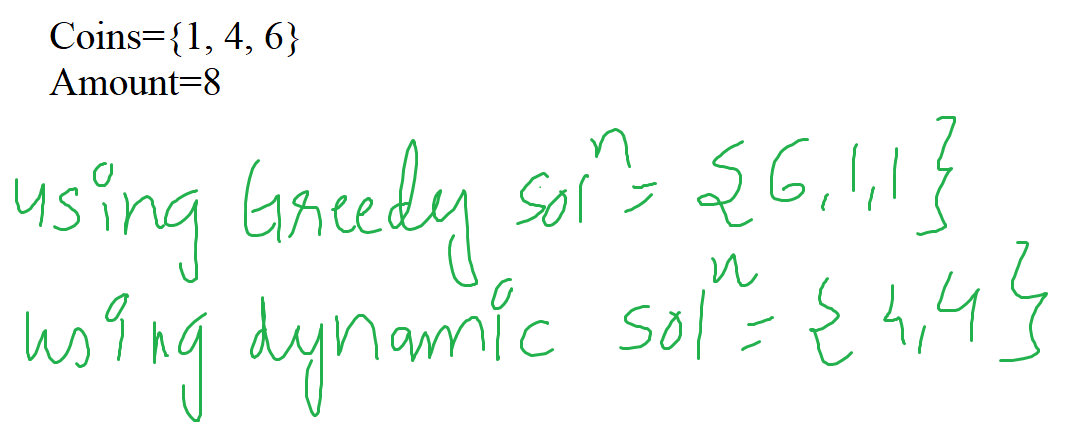 Coins={1, 4, 6}
Amount=8
using Greedy solⁿ = {6,1,1}
using dynamic solⁿ = {4,4}